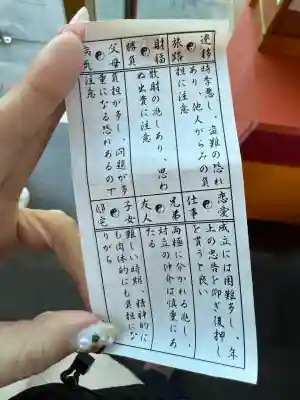 運移
旅路
時季悪し、盗難の恐れ
あり、他人がらみの負
担に注意
財福
勝負
散財の兆しあり、思わ
ぬ出費に注意
父母
病気
負担が多し、問題が多
重になる恐れあるので
注意
恋愛
仕事
成立には困難多し、年
上の忠告を仰ぎ後押し
を貰うと良い
兄弟
友人
両極に分かれる兆し、
対立の仲介は慎重にあ
たる
子女
邸宅
難しい時期、精神的に
も肉体的にも負担にな
りがち